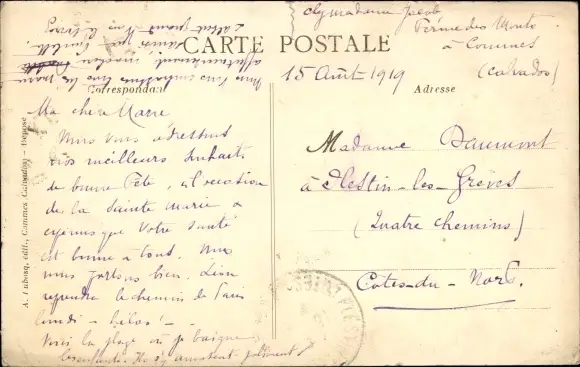 chez madame Jacob
Ferme des Monts
à Commes
(Calvados)
CARTE POSTALE
15 Août 1919
Correspondance
Adresse
Ma chère Marie
Nous vous adressons
nos meilleurs souhaits
de bonne fête, à l'occasion
de la Sainte Marie &
espérons que votre santé
est bonne à tous. Nous
nous portons bien. Léon
reprendra le chemin de Paris
lundi - hélas! - -
Voici la plage où je baigne
les enfants. Ils s'y amusent joliment
Nous vous embrassons tous
affectueusement
Madame Daumont
à Plestin-les-Grèves
(Quatre chemins)
Côtes-du-Nord.
A. Dubosq, édit., Commes (Calvados) - Déposé